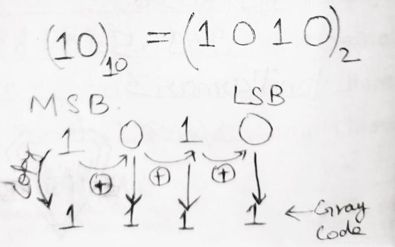 (10)₁₀ = (1 0 1 0)₂
MSB. LSB
1 0 1 0
Copy ⊕ ⊕ ⊕
1 1 1 1 ← Gray Code